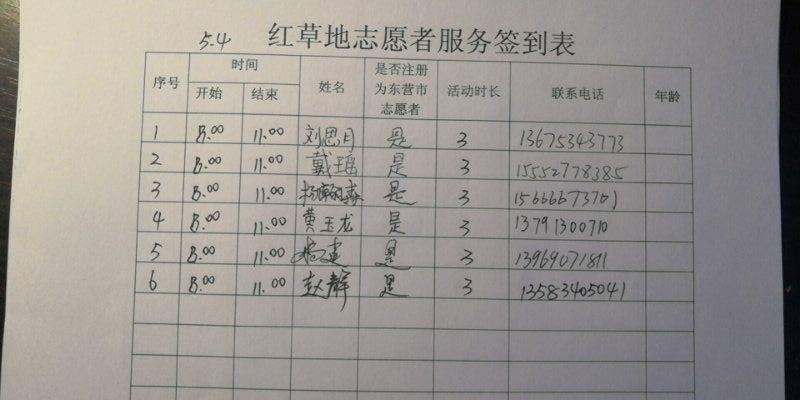 5.4 红草地志愿者服务签到表
序号 时间 开始 结束 姓名 是否注册为东营市志愿者 活动时长 联系电话 年龄
1 8.00 11.00 刘思月 是 3 13675343773
2 8.00 11.00 戴瑶 是 3 15552778385
3 8.00 11.00 是 3 15666673701
4 8.00 11.00 黄玉龙 是 3 13791300710
5 8.00 11.00 是 3 13969071811
6 8.00 11.00 赵静 是 3 13583405041